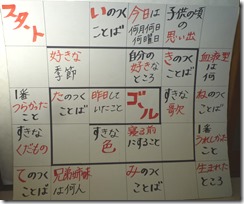 スタート
いのつく
ことば
今日は
何月何日
何曜日
子供の頃
の
思い出
好きな
季節
自分の
好きな
ところ
きのつく
ことば
血液型
は
何
1番
つらかった
こと
たのつく
ことば
昨日して
いたこと
ゴール
すきな
歌
ねのつく
ことば
すきな
くだもの
すきな
色
寝る前
にすること
1番
うれしかった
こと
てのつく
ことば
兄弟姉妹
は何人
みのつく
ことば
生まれた
ところ